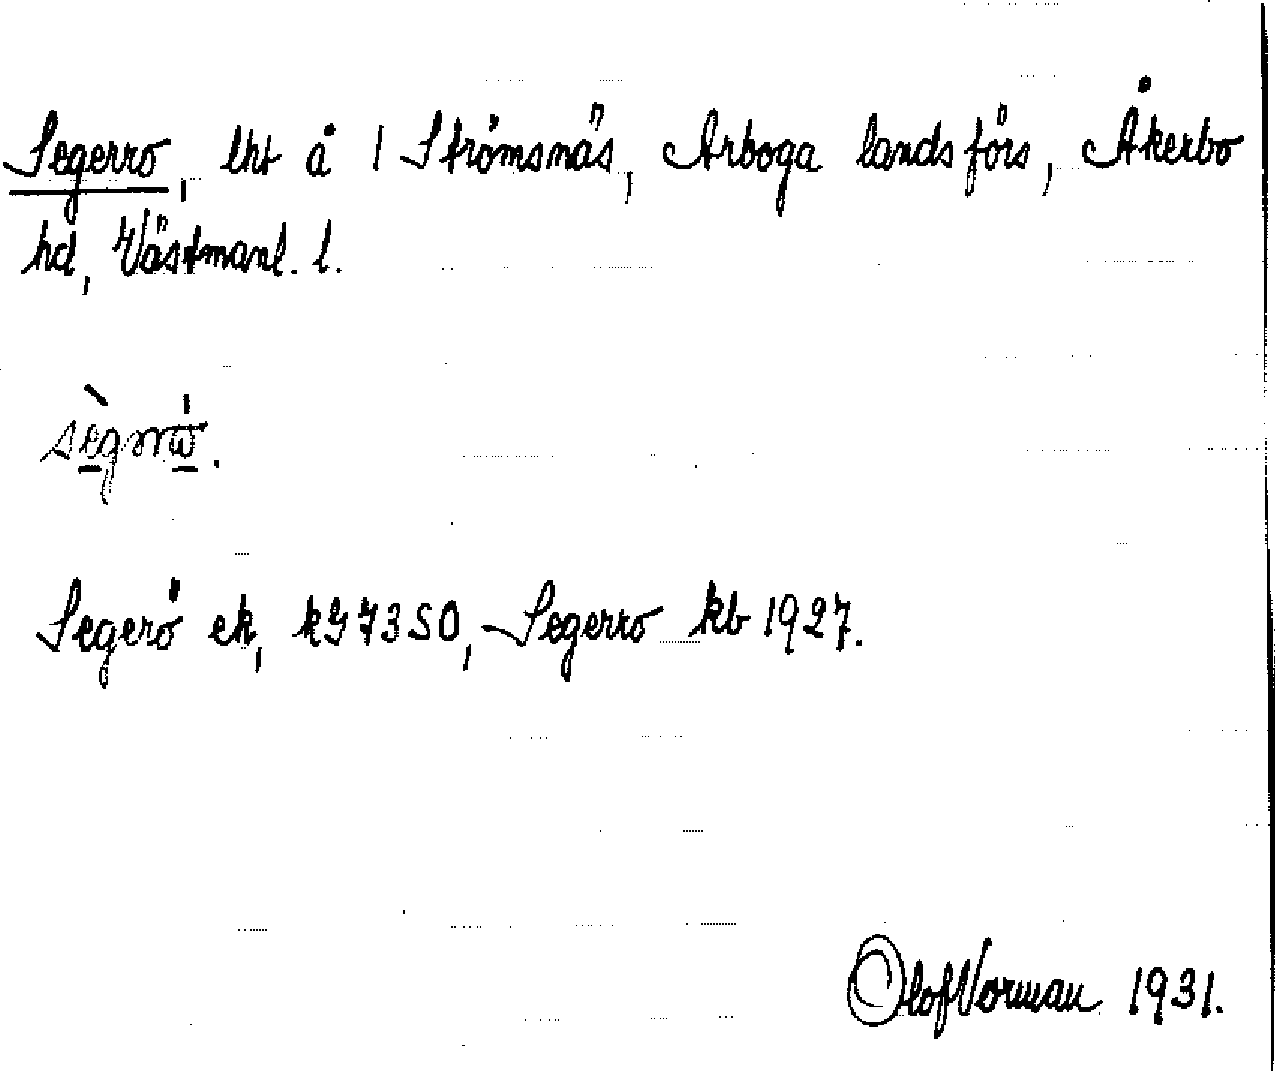 Segerro, lht å 1 Strömsnäs, Arboga landsförs, Åkerbo
hd, Västmanl. l.
Segerö ek, kJ 73 SO, Segerro kb 1927.
Olof Vorman 1931.